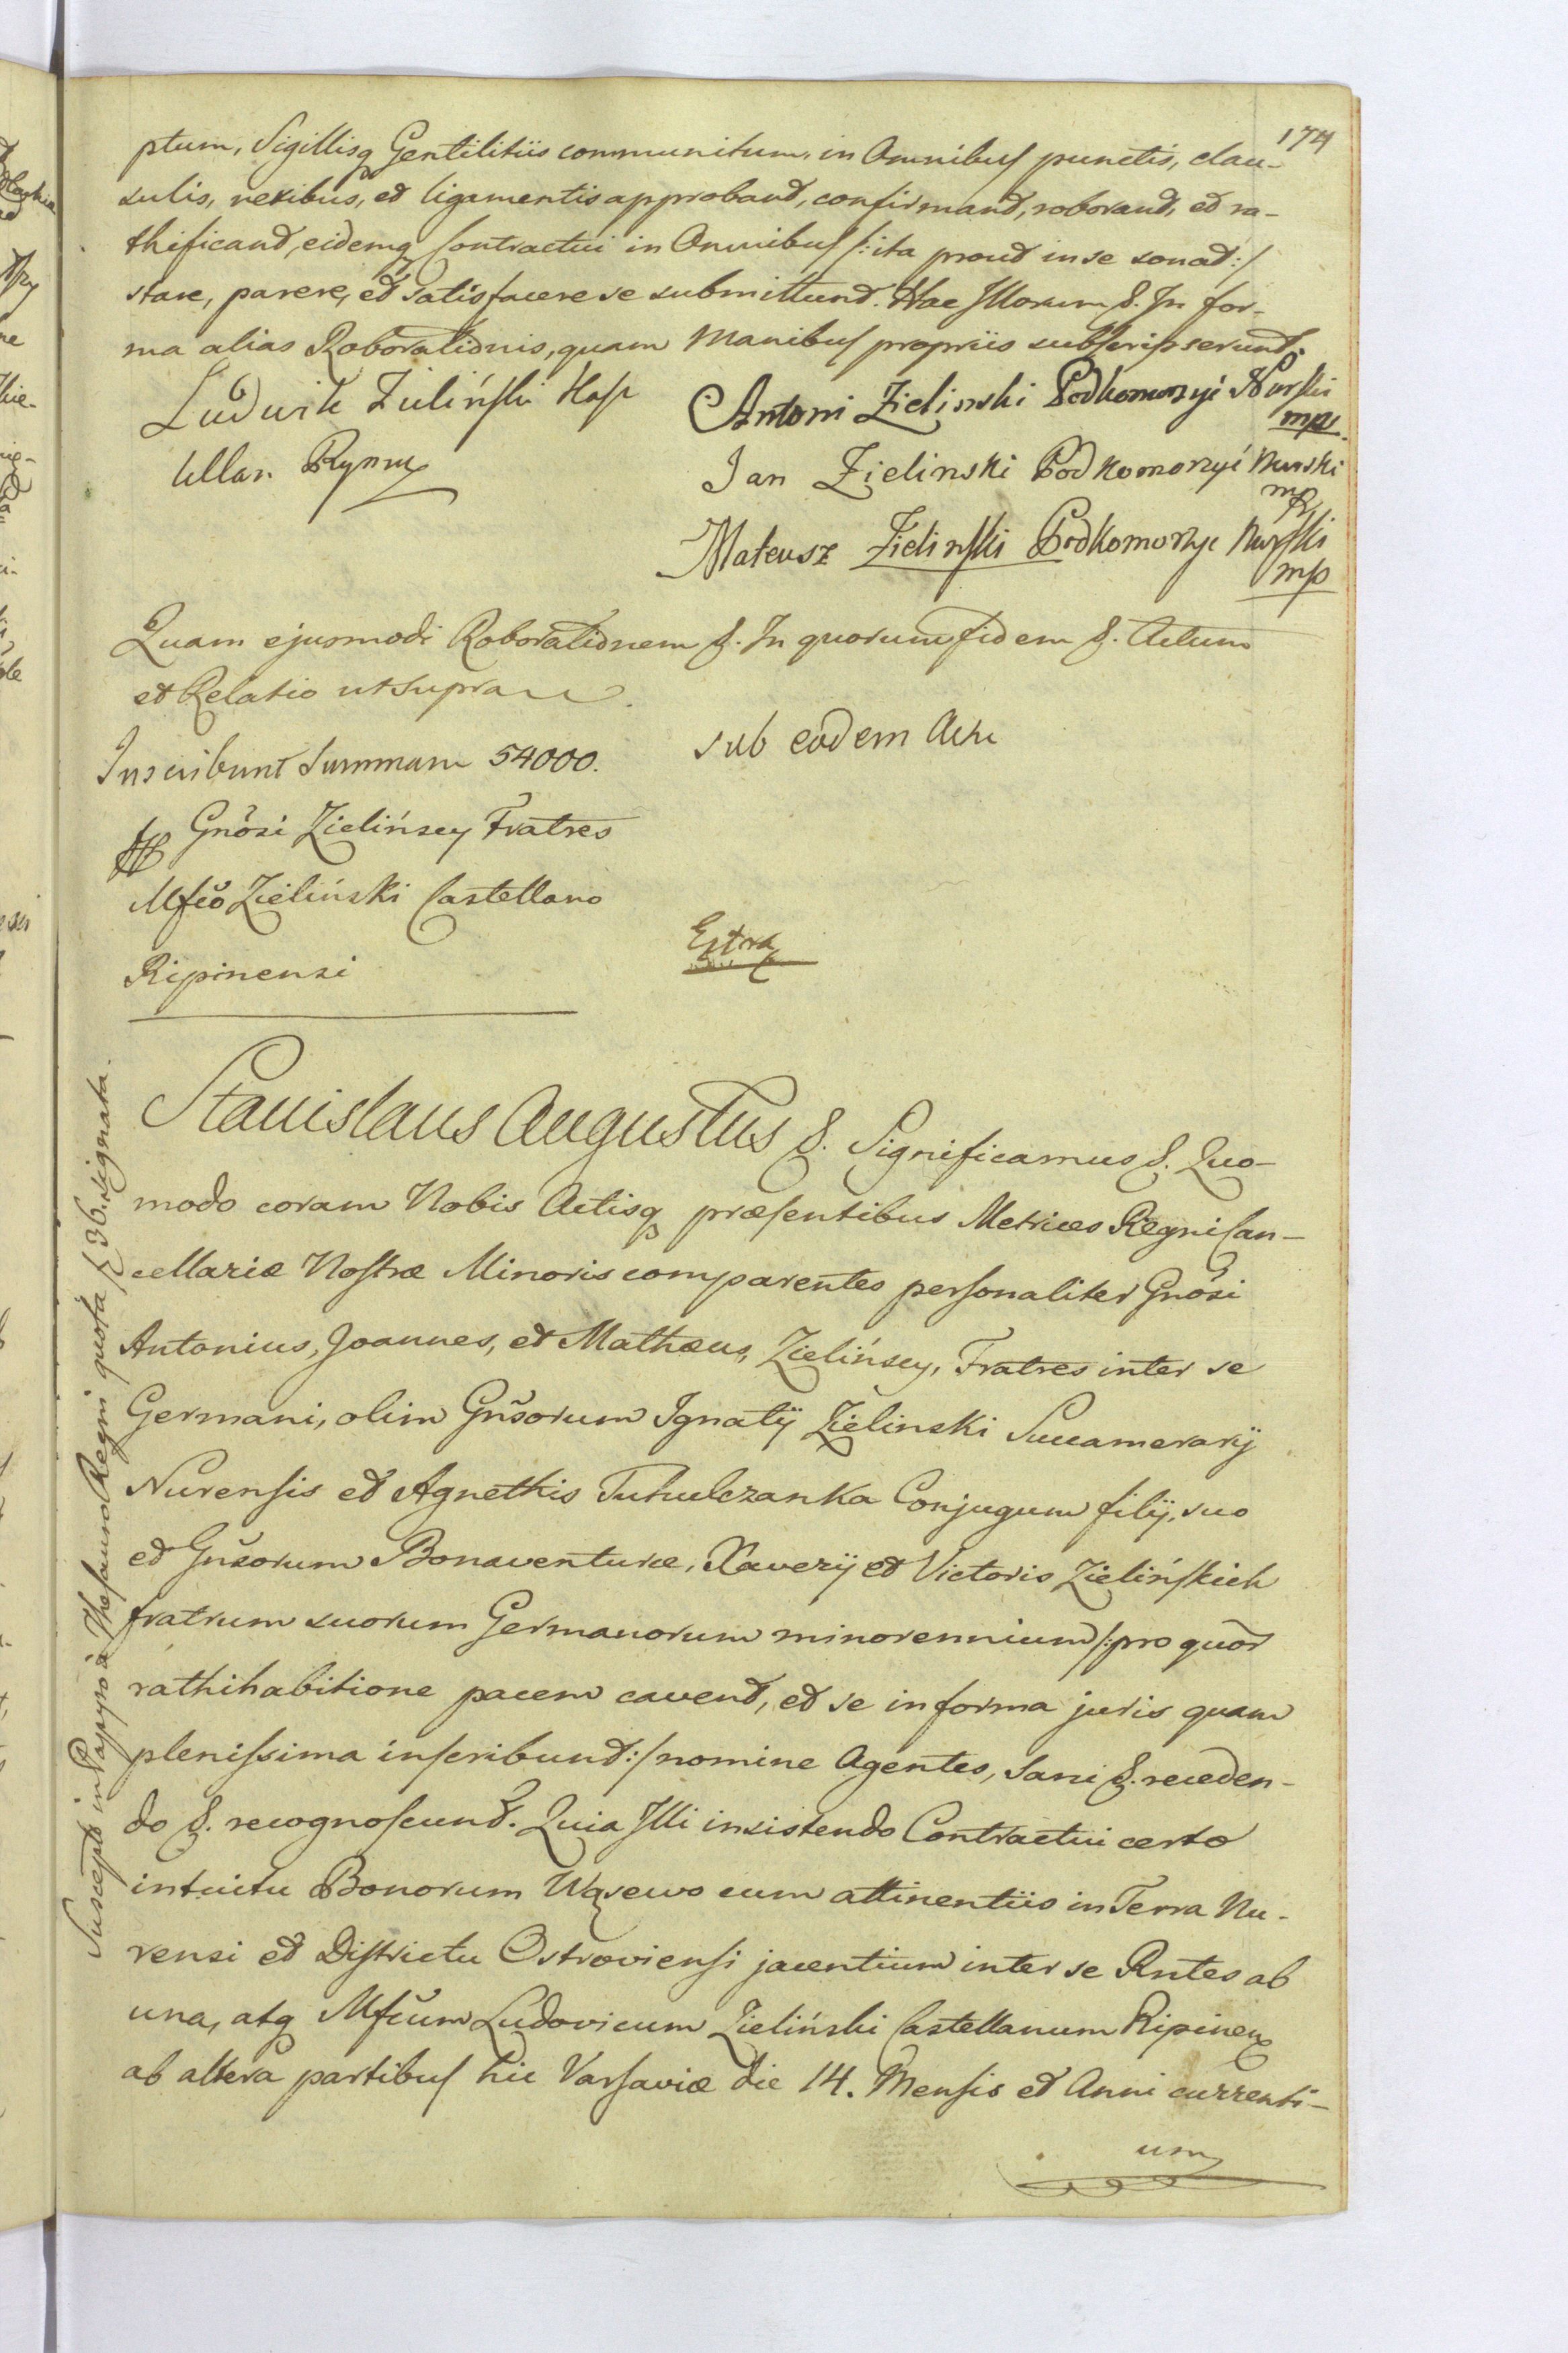 174
ptum, Sigillisq Gentilitiis communitum, in Omnibus punctis, clau-
sulis, nexibus, et ligamentis approband, confirmand, roborand, et ra-
thificand, eidemq Contractui in Omnibus /:ita prout in se sonat:/
stare, parere, et satisfacere se submittund. Hac Illorum &. In for-
ma alias Roborationis, quam Manibus propriis subscripserunt.
Ludwik Zieliński Kasz
tellan Rypiny
Antoni Zielinski Podkomorzyć Nurski
mpr.
Jan Zielinski Podkomorzyć Nurski
mp
Mateusz Zielinski Podkomorzyc Nurski
mp
Quam ejusmodi Roborationem &. In quorum fidem &. Actum
et Relatio ut supra
Inscribunt Summam 54000.
sub eodem Actu
Gnosi Zielińscy Fratres
Mfco Zieliński Castellano
Ripinensi
Extra
Stanislaus Augustus &. Significamus &. Quo-
modo coram Nobis Actisq præsentibus Metrices Regni Can-
cellariæ Nostræ Minoris comparentes personaliter Gnosi
Antonius, Joannes, et Mathæus, Zielińscy, Fratres inter se
Germani, olim Gnsorum Ignatij Zielinski Succamerarij
Nurensis et Agnethis Tuhulczanka Conjugum filij, suo
et Gnsorum Bonaventuræ, Xaverij et Victoris Zielińskich
fratrum suorum Germanorum minorennium /:pro quor
rathihabitione pacem cavent, et se in forma juris quam
plenissima inscribund:/ nomine Agentes, Sani &. receden-
do &. recognoscund. Quia Illi insistendo Contractui certo
intuitu Bonorum Wąsewo cum attinentiis in Terra Nu-
rensi et Districtu Ostroviensi jacentium inter se Rntes ab
una, atq Mfcum Ludovicum Zieliński Castellanum Ripinen
ab altera partibus hic Varsaviæ die 14. Mensis et Anni currenti-
um
Suscepta in Papyro a Thesauro Regni quota f 36. signata.